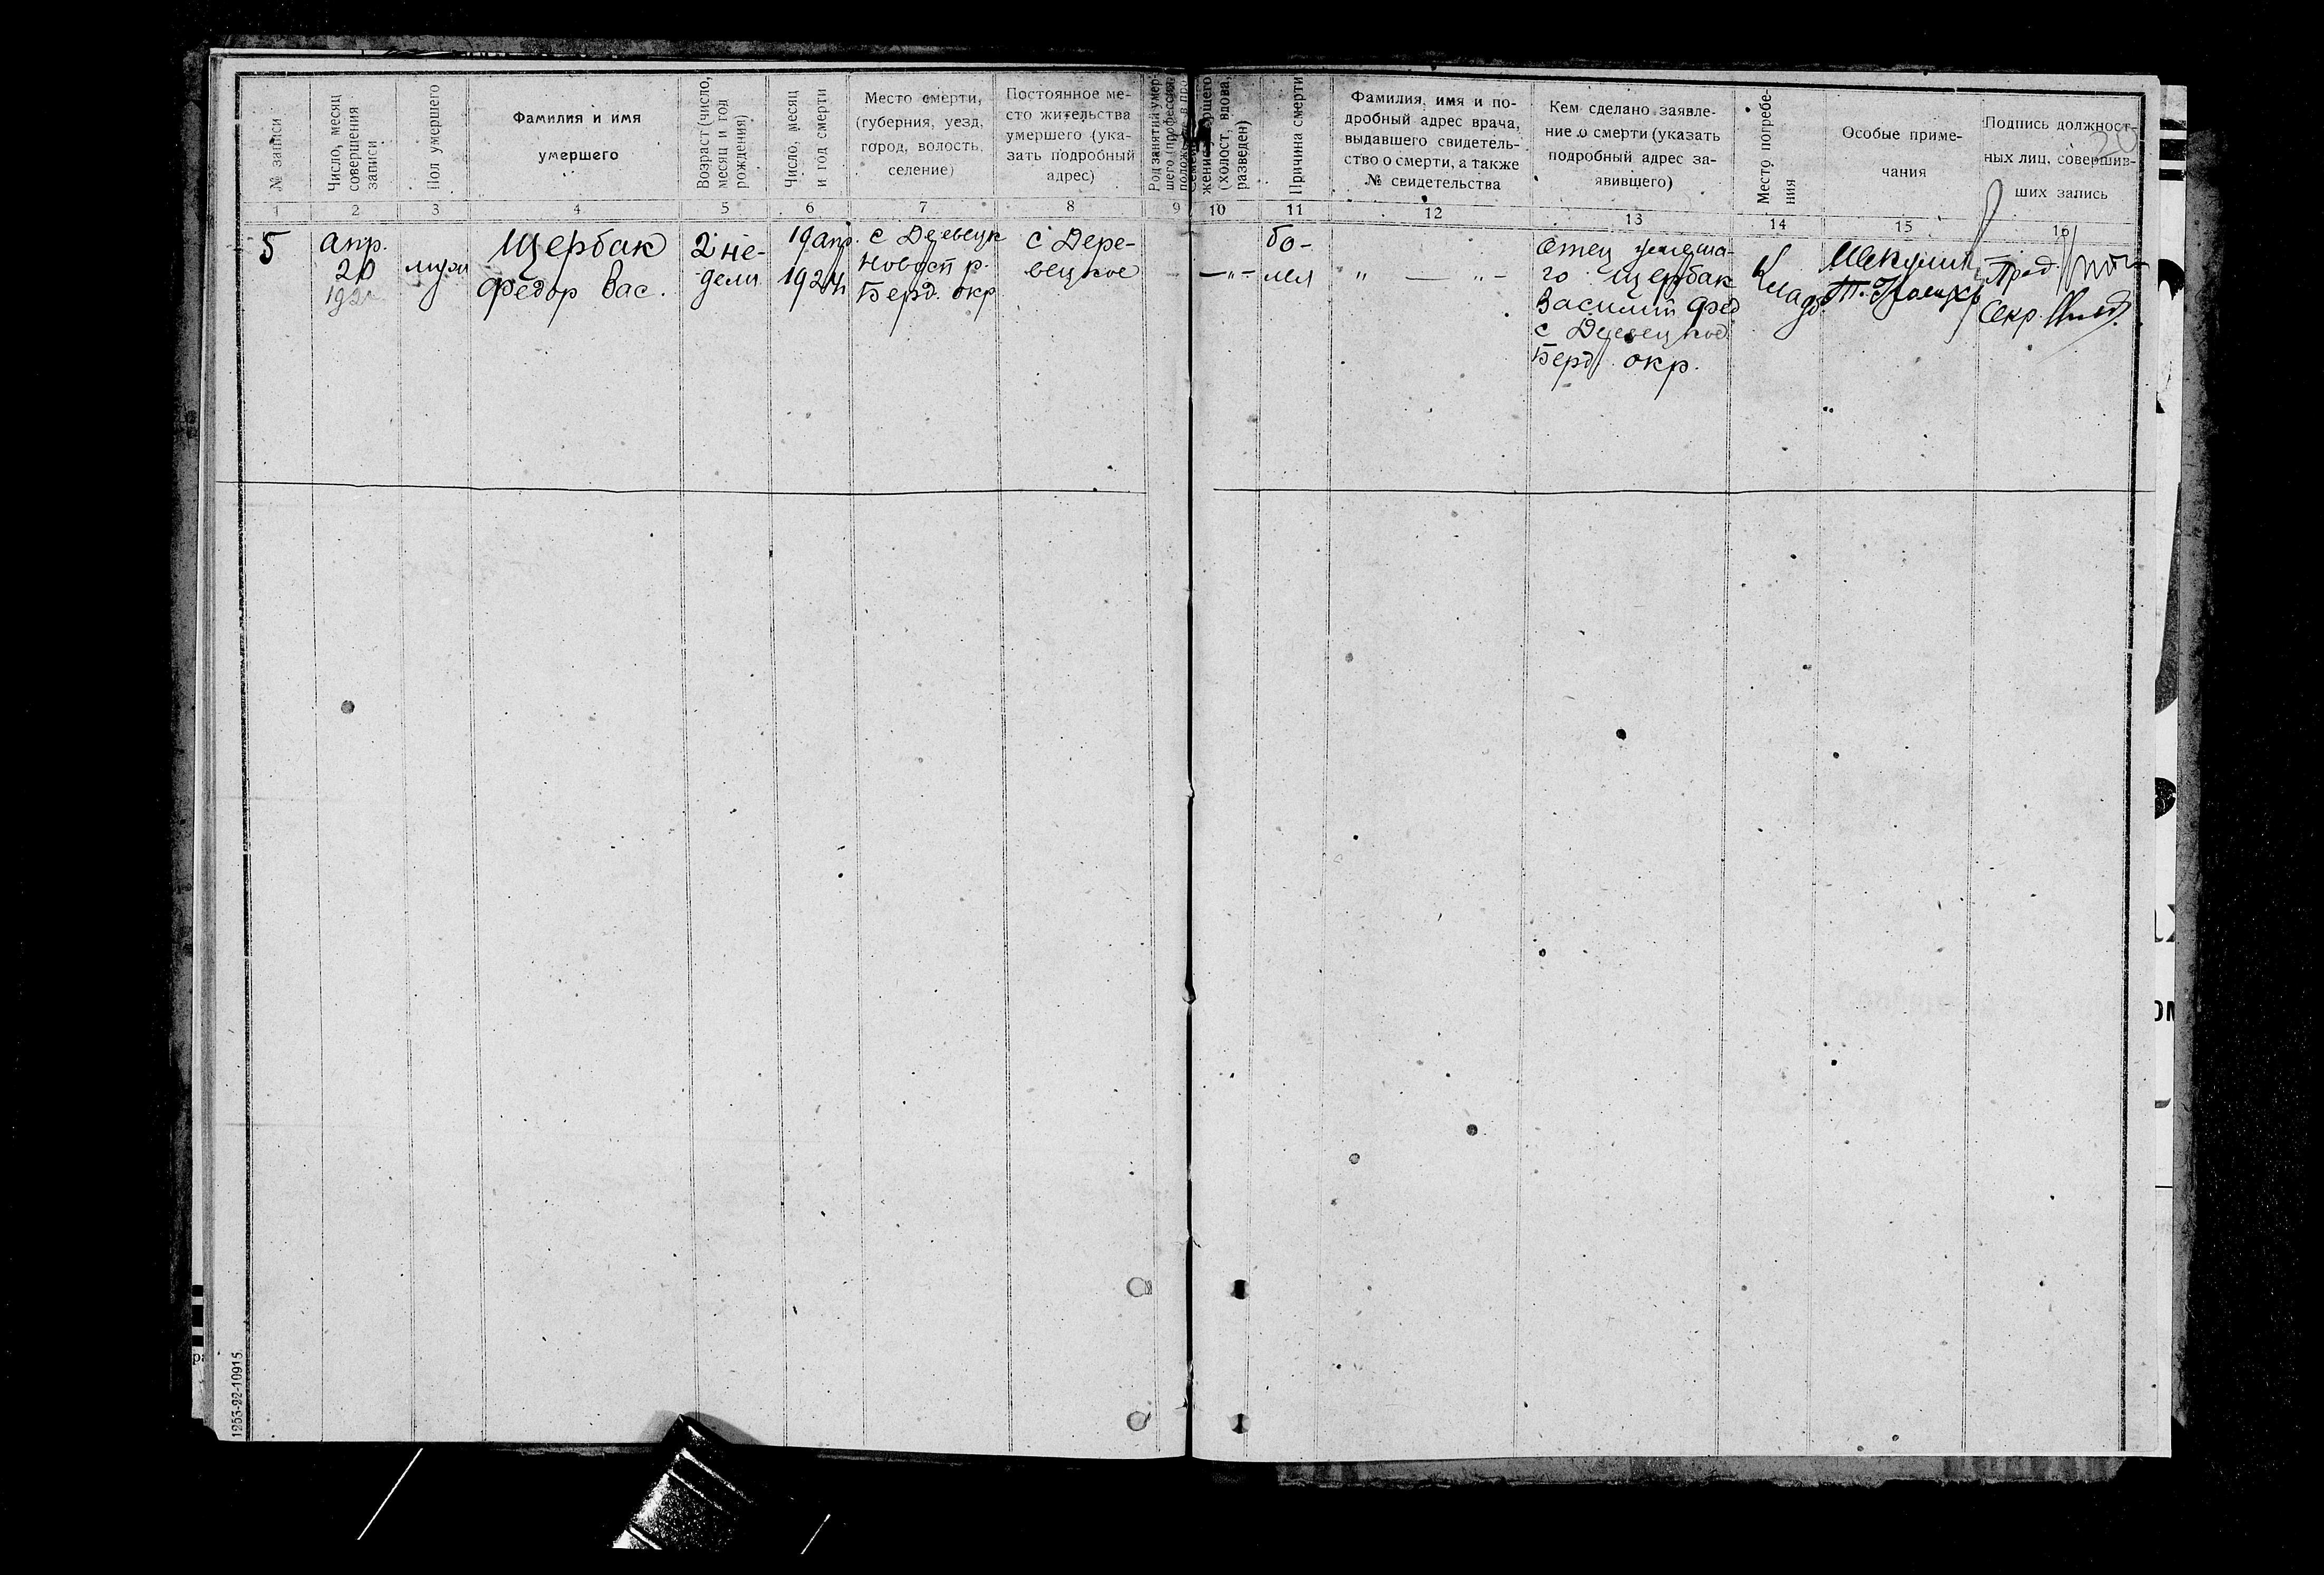 № записи
Число, месяц
совершения
записи
Пол умершего
Фамилия и имя
умершего
Возраст (число,
месяц и год
рождения)
Число, месяц
и год смерти
Место смерти,
(губерния, уезд,
город, волость,
селение)
Постоянное ме-
сто жительства
умершего (ука-
зать подробный
адрес)
Род занятий умер-
шего (профессия,
(холост, вдова,
разведен)
Причина смерти
Фамилия, имя и по-
дробный адрес врача,
выдавшего свидетель-
ство о смерти, а также
№ свидетельства
Кем сделано заявле-
ние о смерти (указать
подробный адрес за-
явившего)
Место погребе-
ния
Особые приме-
чания
Подпись должност-
ных лиц, совершив-
ших запись
20
1 2 3 4 5 6 7 8 9 10 11 12 13 14 15 16
5
апр.
20
192
муж
Щербак
Федор Вас.
2 не-
дели
19 апр.
1924
с Деревецк
Новост р.
Берд. окр
с Дере-
вецкое
— " —
бо-
лел
" — " —
Отец умерша-
го Щербак
Василий Фед
с Деревецкое
Берд. окр.
Кладб.
Пред.
Секр.
1253-22-10915.